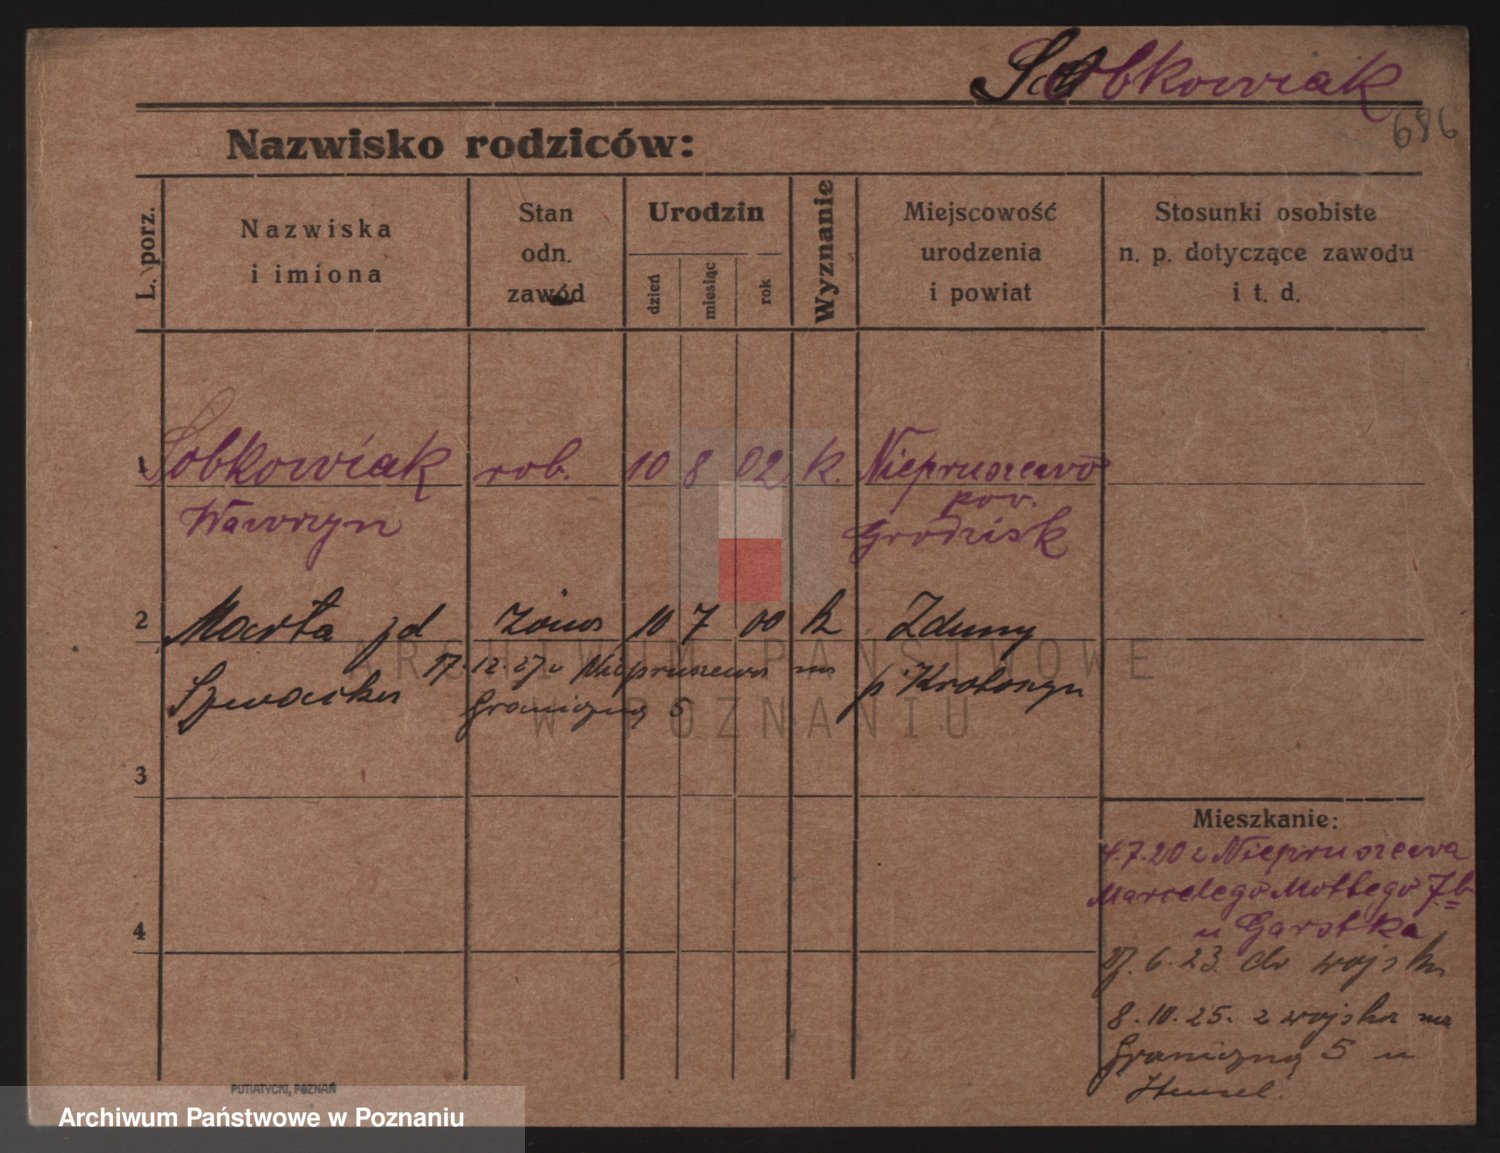 Sobkowiak
686
Nazwisko rodziców:
L. porz.
Nazwiska
i imiona
Stan
odn.
zawód
Urodzin
dzień
miesiąc
rok
Wyznanie
Miejscowość
urodzenia
i powiat
Stosunki osobiste
n. p. dotyczące zawodu
i t. d.
1 Sobkowiak rob. 10 8 02 k. Niepruszewo
Wawrzyn pow.
Grodzisk
2 Marta żona 10 7 00 k Zduny
17.12.27 z Niepruszewa na
p. Krotoszyn
Graniczną 5
3
4
Mieszkanie:
4.7.20 z Niepruszewa
Marcelego Mottego 7b
u Garstka
6.23. do wojska
8.10.25. z wojska na
Graniczną 5 u
ARCHIWUM PAŃSTWOWE
W POZNANIU
PUTIATYCKI, POZNAŃ
Archiwum Państwowe w Poznaniu